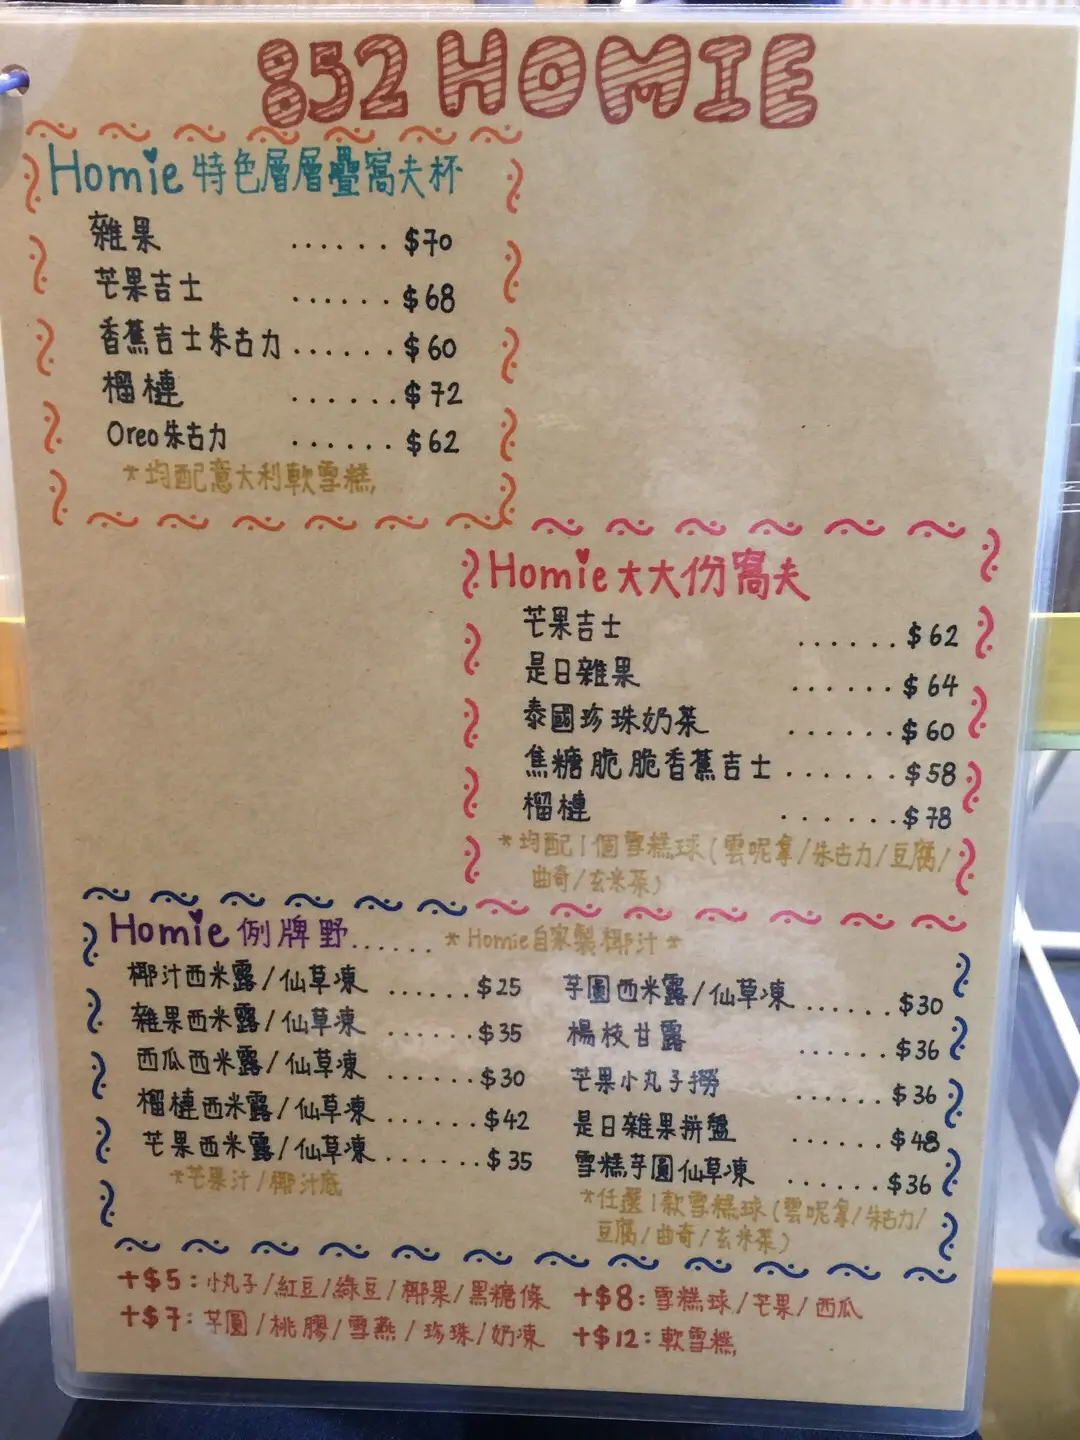 852 HOMIE
Homie 特色層層疊窩夫杯
雜果 ...... $70
芒果吉士 ...... $68
香蕉吉士朱古力 ...... $60
榴槤 ...... $72
Oreo朱古力 ...... $62
*均配意大利軟雪糕
Homie 大大份窩夫
芒果吉士 ...... $62
是日雜果 ...... $64
泰國珍珠奶茶 ...... $60
焦糖脆脆香蕉吉士 ...... $58
榴槤 ...... $78
*均配1個雪糕球(雲呢拿/朱古力/豆腐/
曲奇/玄米茶)
Homie 例牌野...... *Homie自家製椰汁*
椰汁西米露/仙草凍 ...... $25
雜果西米露/仙草凍 ...... $35
西瓜西米露/仙草凍 ...... $30
榴槤西米露/仙草凍 ...... $42
芒果西米露/仙草凍 ...... $35
*芒果汁/椰汁底
芋圓西米露/仙草凍 ...... $30
楊枝甘露 ...... $36
芒果小丸子撈 ...... $36
是日雜果拼盤 ...... $48
雪糕芋圓仙草凍 ...... $36
*任選1款雪糕球(雲呢拿/朱古力/
豆腐/曲奇/玄米茶)
+$5:小丸子/紅豆/綠豆/椰果/黑糖條
+$7:芋圓/桃膠/雪燕/珍珠/奶凍
+$8:雪糕球/芒果/西瓜
+$12:軟雪糕